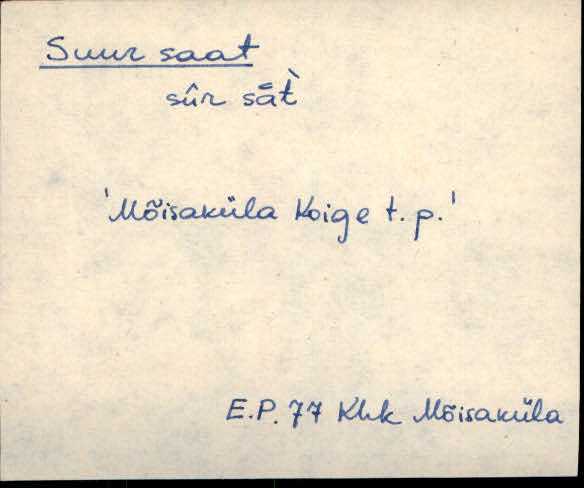 Suur saat
sûr sāt̀
'Mõisaküla Koige t.p.'
E.P. 77 Khk Mõisaküla